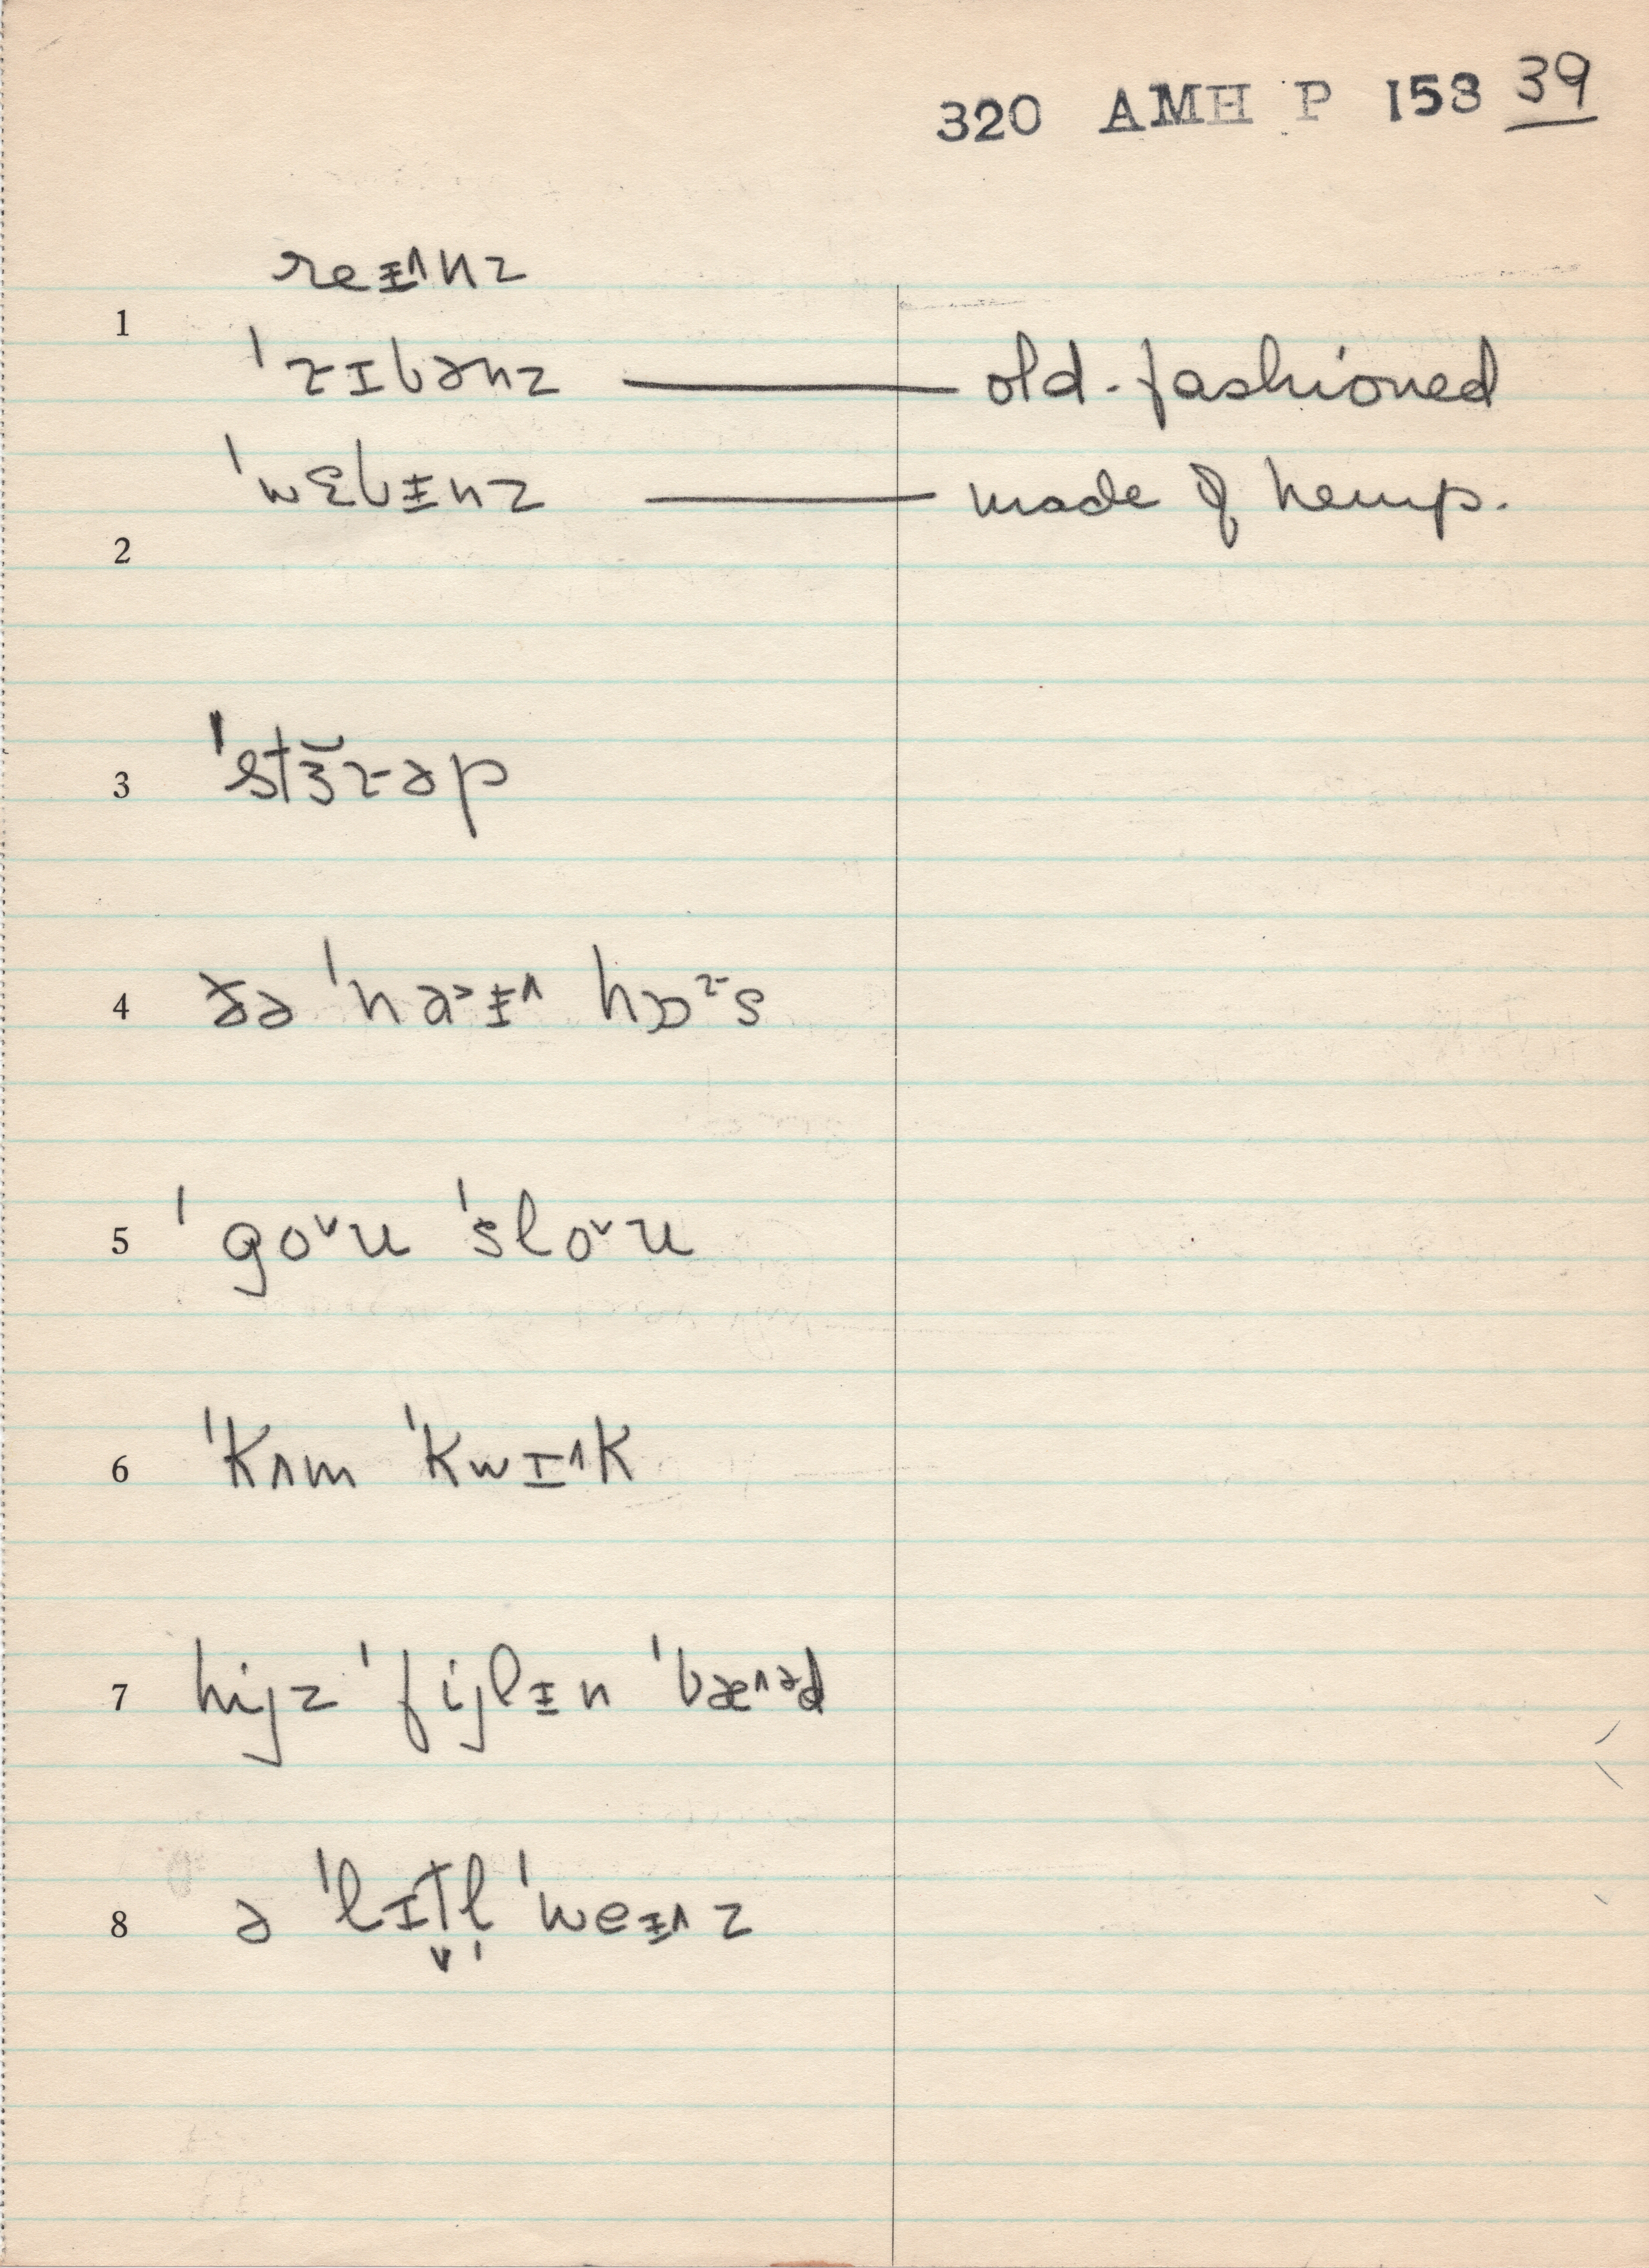 320 AMH P 153 39
reᵻ^nz
1
ˈrɪbənz — old-fashioned
ˈwɛbᵻnz — made of hemp.
2
3 ˈstɜ̆rəp
4 ðə ˈna>ᵻ^ hɒʳs
5 ˈgoˇu ˈsloˇu
6 ˈkʌm ˈkwɪ^k
7 hijz ˈfijlᵻn ˈbæ^əd
8 ə ˈlɪt̬l̩ ˈweᵻ^z